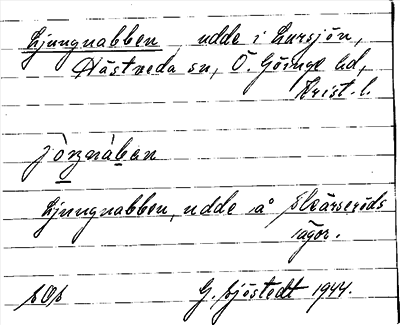 Ljungnabben, udde i Lursjön,
Hästveda sn, Ö. Göinge hd,
Krist. l.
jòngnàben
Ljungnabben, udde å Skärseröds
ägor.
G. Sjöstedt 1944.